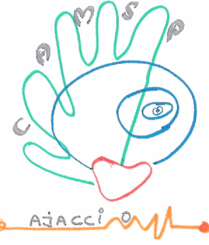 CAMSP
AJACCIO